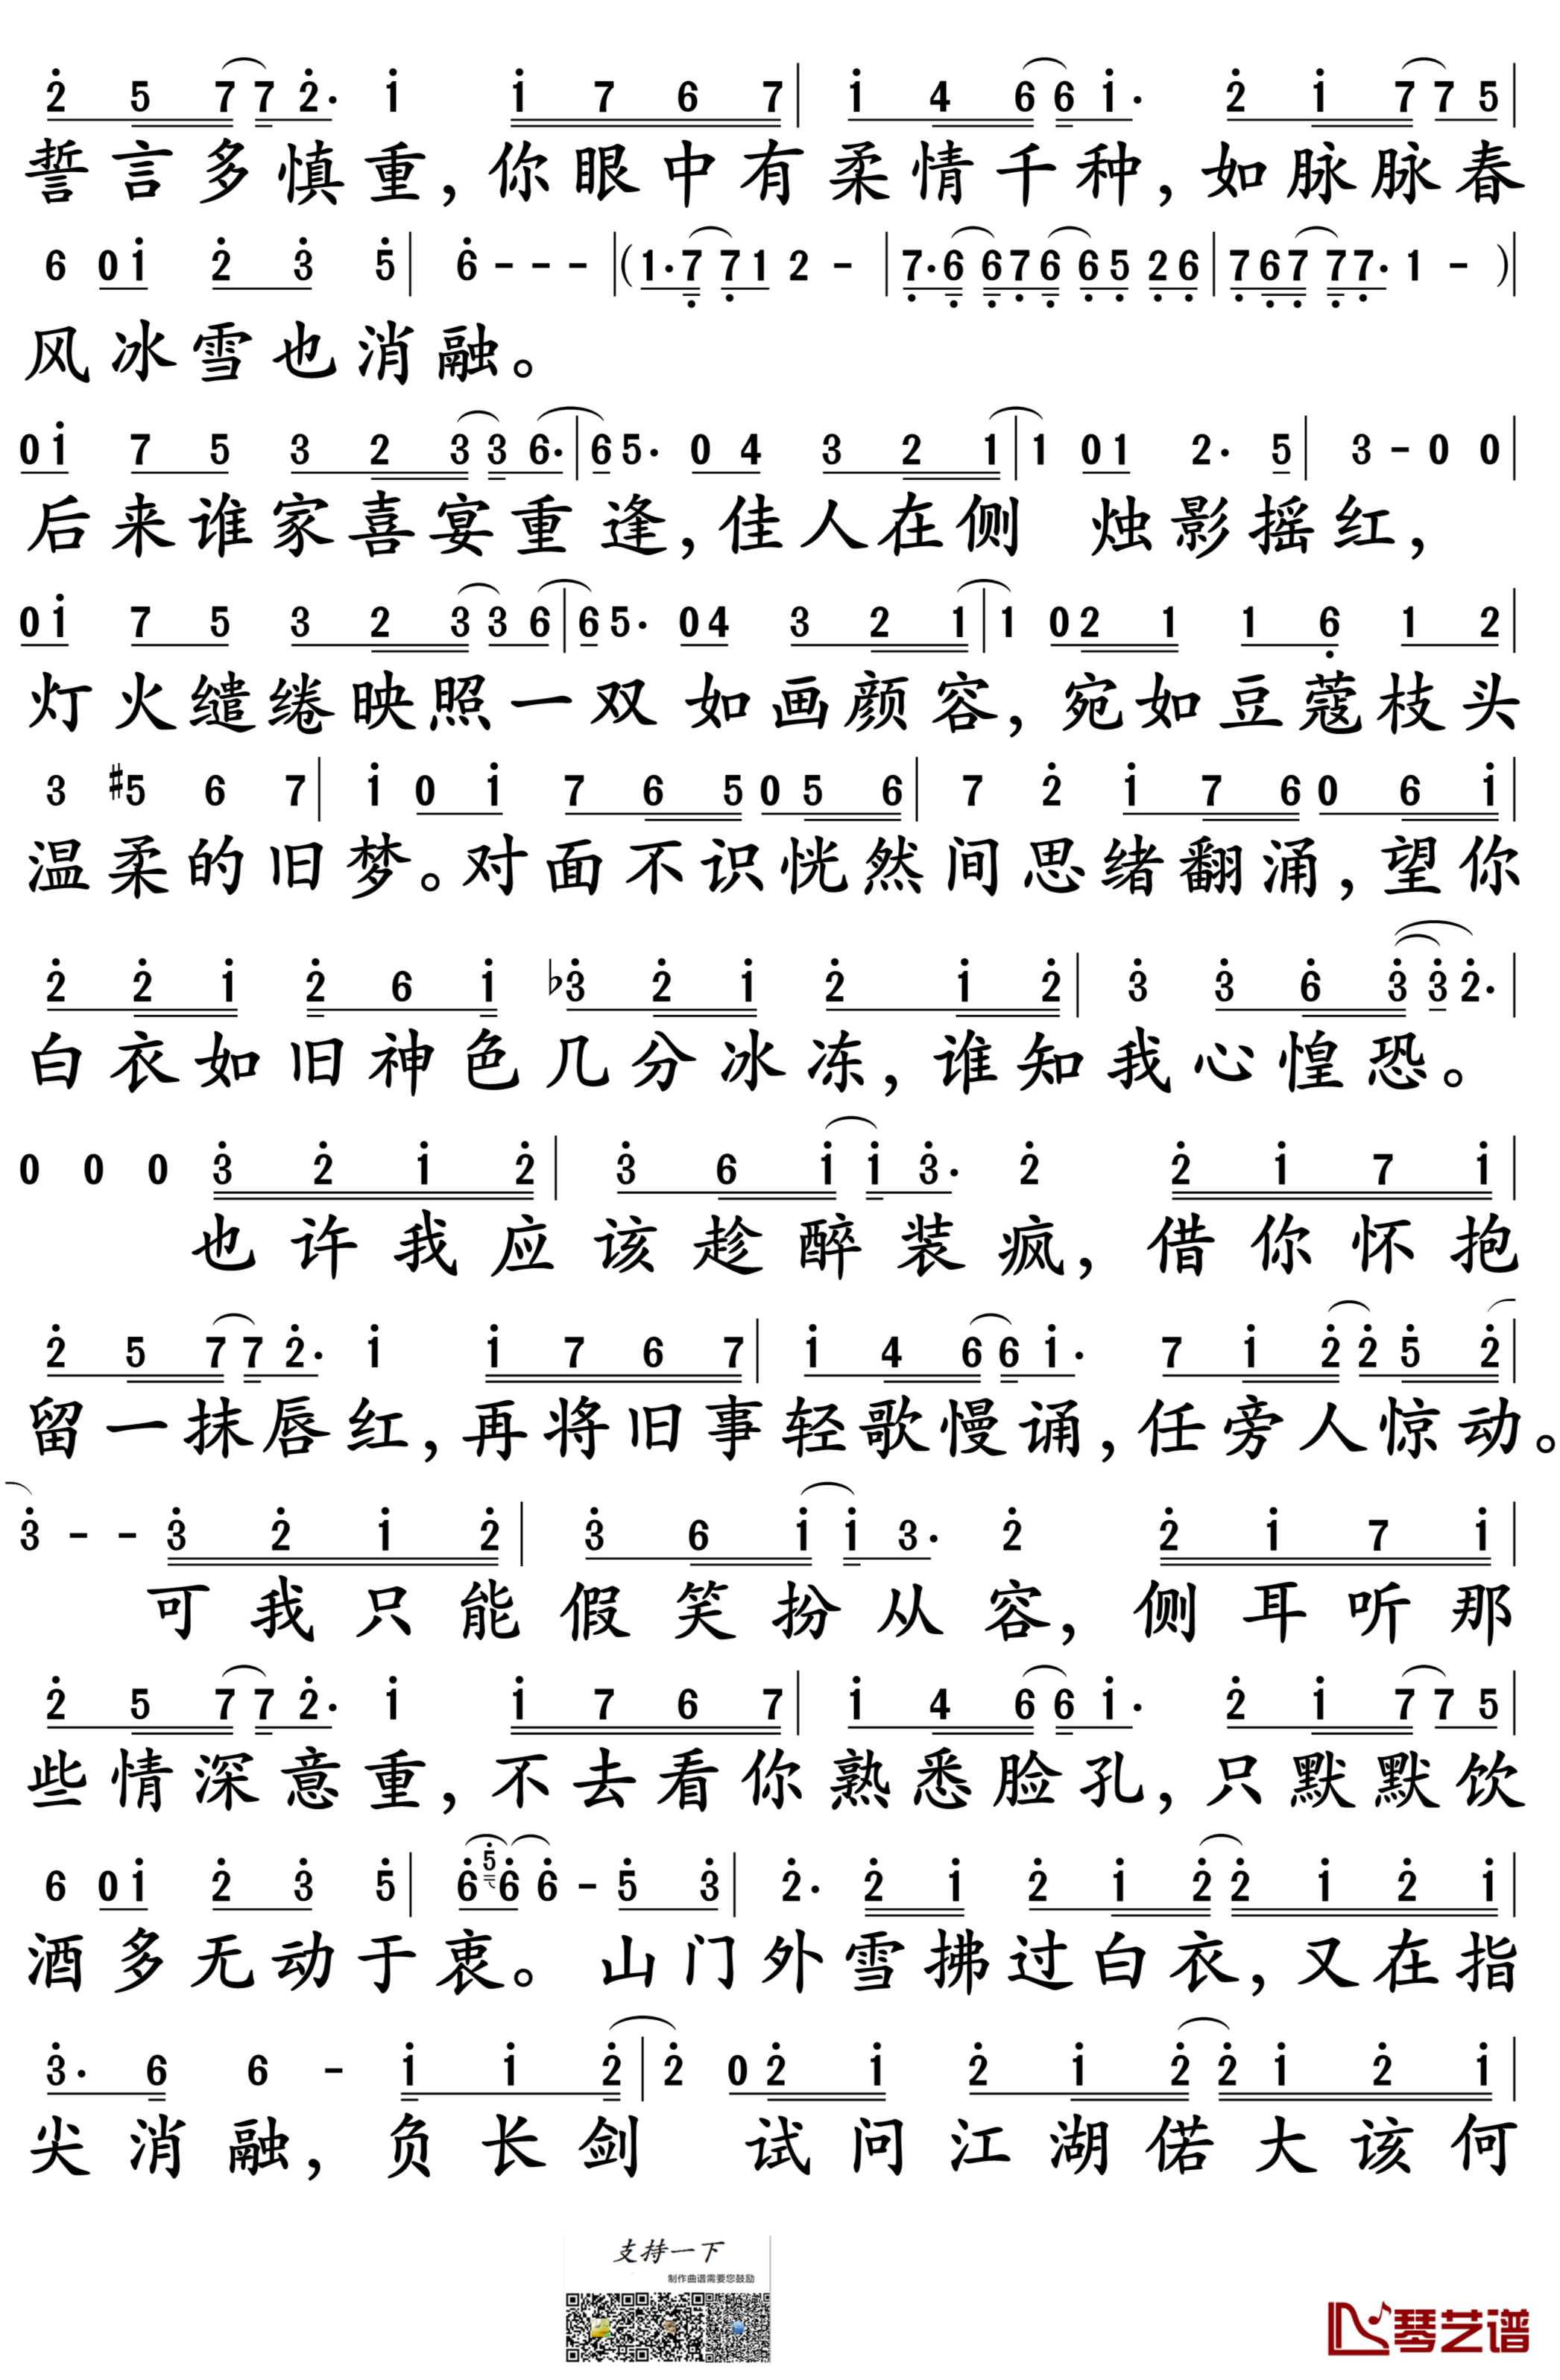 2 5 7 7 2· 1 1 7 6 7 | 1 4 6 6 1· 2 1 7 7 5 |
誓言多慎重,你眼中有柔情千种,如脉脉春
6 0 1 2 3 5 | 6 - - - | (1·7 7 1 2 - | 7·6 6 7 6 6 5 2 6 | 7 6 7 7 7· 1 - ) |
风冰雪也消融。
0 1 7 5 3 2 3 3 6· | 6 5· 0 4 3 2 1 | 1 0 1 2· 5 | 3 - 0 0 |
后来谁家喜宴重逢,佳人在侧 烛影摇红,
0 1 7 5 3 2 3 3 6 | 6 5· 0 4 3 2 1 | 1 0 2 1 1 6 1 2 |
灯火缱绻映照一双如画颜容,宛如豆蔻枝头
3 #5 6 7 | 1 0 1 7 6 5 0 5 6 | 7 2 1 7 6 0 6 1 |
温柔的旧梦。对面不识恍然间思绪翻涌,望你
2 2 1 2 6 1 ♭3 2 1 2 1 2 | 3 3 6 3 3 2· |
白衣如旧神色几分冰冻,谁知我心惶恐。
0 0 0 3 2 1 2 | 3 6 1 1 3· 2 2 1 7 1 |
也许我应该趁醉装疯,借你怀抱
2 5 7 7 2· 1 1 7 6 7 | 1 4 6 6 1· 7 1 2 2 5 2 |
留一抹唇红,再将旧事轻歌慢诵,任旁人惊动。
3 - - 3 2 1 2 | 3 6 1 1 3· 2 2 1 7 1 |
可我只能假笑扮从容,侧耳听那
2 5 7 7 2· 1 1 7 6 7 | 1 4 6 6 1· 2 1 7 7 5 |
些情深意重,不去看你熟悉脸孔,只默默饮
6 0 1 2 3 5 | 6 5 6 6 - 5 3 | 2· 2 1 2 1 2 2 1 2 1 |
酒多无动于衷。山门外雪拂过白衣,又在指
3· 6 6 - 1 1 2 | 2 0 2 1 2 1 2 2 1 2 1 |
尖消融,负长剑 试问江湖偌大该何
支持一下
制作曲谱需要您鼓励
琴艺谱